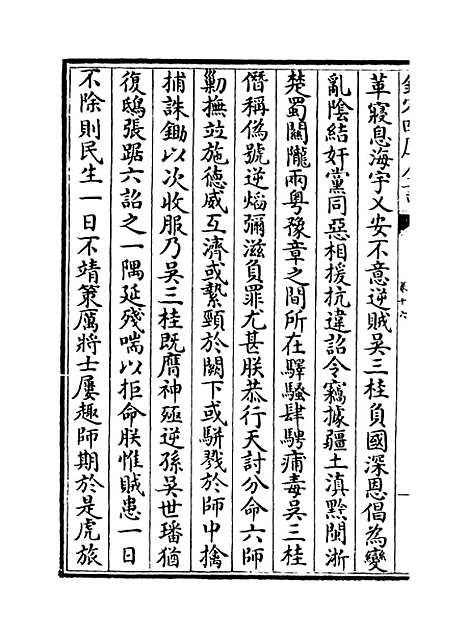 卷十六
革寢息海宇乂安不意逆賊吳三桂負國深恩倡為變
亂陰結奸黨同惡相援抗違詔令竊據疆土滇黔閩浙
楚蜀關隴兩粵豫章之間所在驛騷肆騁痡毒吳三桂
僭稱偽號逆熖彌滋負罪尤甚朕恭行天討分命六師
勦撫竝施德威互濟或繫頸於闕下或駢戮於師中擒
捕誅鋤以次收服乃吳三桂既膺神殛逆孫吳世璠猶
復鴟張踞六詔之一隅延殘喘以拒命朕惟賊患一日
不除則民生一日不靖策厲將士屢趣師期於是虎旅